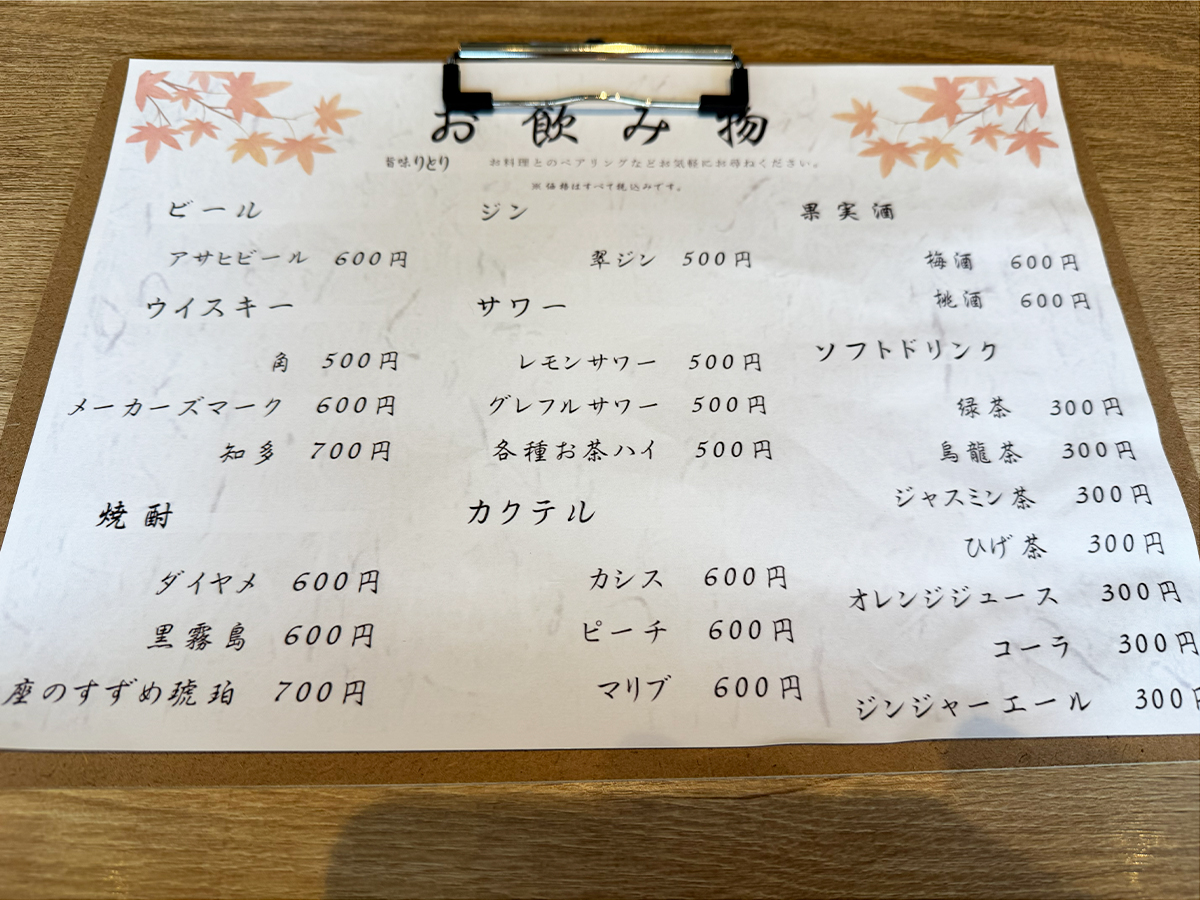 お飲み物
旨味りとり お料理とのペアリングなどお気軽にお尋ねください。
※価格はすべて税込みです。
ビール
アサヒビール 600円
ウイスキー
角 500円
メーカーズマーク 600円
知多 700円
焼酎
ダイヤメ 600円
黒霧島 600円
座のすずめ琥珀 700円
ジン
翠ジン 500円
サワー
レモンサワー 500円
グレフルサワー 500円
各種お茶ハイ 500円
カクテル
カシス 600円
ピーチ 600円
マリブ 600円
果実酒
梅酒 600円
桃酒 600円
ソフトドリンク
緑茶 300円
烏龍茶 300円
ジャスミン茶 300円
ひげ茶 300円
オレンジジュース 300円
コーラ 300円
ジンジャーエール 300円